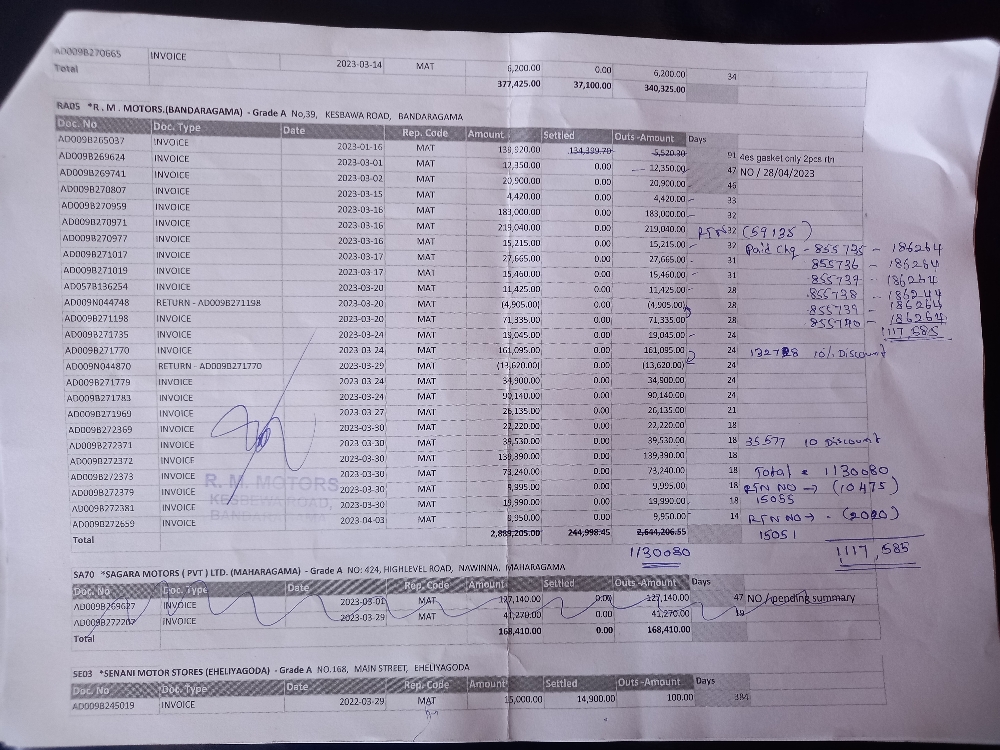 AD009B270665 INVOICE 2023-03-14 MAT 6,200.00 0.00 6,200.00 34
Total 377,425.00 37,100.00 340,325.00
RA05 *R . M . MOTORS.(BANDARAGAMA) - Grade A No,39, KESBAWA ROAD, BANDARAGAMA
Doc. No Doc. Type Date Rep. Code Amount Settled Outs-Amount Days
AD009B265037 INVOICE 2023-01-16 MAT 139,920.00 134,399.70 5,520.30 91 4es gasket only 2pcs rtn
AD009B269624 INVOICE 2023-03-01 MAT 12,350.00 0.00 12,350.00 47 NO / 28/04/2023
AD009B269741 INVOICE 2023-03-02 MAT 20,900.00 0.00 20,900.00 46
AD009B270807 INVOICE 2023-03-15 MAT 4,420.00 0.00 4,420.00 33
AD009B270959 INVOICE 2023-03-16 MAT 183,000.00 0.00 183,000.00 32
AD009B270971 INVOICE 2023-03-16 MAT 219,040.00 0.00 219,040.00 32 RTN (59135)
AD009B270977 INVOICE 2023-03-16 MAT 15,215.00 0.00 15,215.00 32 Paid Chq - 855735 - 186264
AD009B271017 INVOICE 2023-03-17 MAT 27,665.00 0.00 27,665.00 31 855736 - 186264
AD009B271019 INVOICE 2023-03-17 MAT 15,460.00 0.00 15,460.00 31 855737 - 186264
AD057B136254 INVOICE 2023-03-20 MAT 11,425.00 0.00 11,425.00 28 855738 - 186244
AD009N044748 RETURN - AD009B271198 2023-03-20 MAT (4,905.00) 0.00 (4,905.00) 28 855739 - 186264
AD009B271198 INVOICE 2023-03-20 MAT 71,335.00 0.00 71,335.00 28 855740 - 186264
AD009B271735 INVOICE 2023-03-24 MAT 19,045.00 0.00 19,045.00 24 1117,585
AD009B271770 INVOICE 2023-03-24 MAT 161,095.00 0.00 161,095.00 24 132728 10% Discount
AD009N044870 RETURN - AD009B271770 2023-03-29 MAT (13,620.00) 0.00 (13,620.00) 24
AD009B271779 INVOICE 2023-03-24 MAT 34,900.00 0.00 34,900.00 24
AD009B271783 INVOICE 2023-03-24 MAT 90,140.00 0.00 90,140.00 24
AD009B271969 INVOICE 2023-03-27 MAT 26,135.00 0.00 26,135.00 21
AD009B272369 INVOICE 2023-03-30 MAT 22,220.00 0.00 22,220.00 18
AD009B272371 INVOICE 2023-03-30 MAT 39,530.00 0.00 39,530.00 18 35577 10 Discount
AD009B272372 INVOICE 2023-03-30 MAT 139,390.00 0.00 139,390.00 18
AD009B272373 INVOICE 2023-03-30 MAT 73,240.00 0.00 73,240.00 18 Total = 1130080
AD009B272379 INVOICE 2023-03-30 MAT 9,995.00 0.00 9,995.00 18 RTN NO → (10475)
AD009B272381 INVOICE 2023-03-30 MAT 19,990.00 0.00 19,990.00 18 15055
AD009B272659 INVOICE 2023-04-03 MAT 9,950.00 0.00 9,950.00 14 RTN NO → - (2020)
Total 2,889,205.00 244,998.45 2,644,206.55 15051
R. M. MOTORS
KESBEWA ROAD,
1130080 1117,585
SA70 *SAGARA MOTORS ( PVT ) LTD. (MAHARAGAMA) - Grade A NO: 424, HIGHLEVEL ROAD, NAWINNA, MAHARAGAMA
Doc. No Doc. Type Date Rep. Code Amount Settled Outs-Amount Days
AD009B269627 INVOICE 2023-03-01 MAT 127,140.00 0.00 127,140.00 47 NO / pending summary
AD009B272207 INVOICE 2023-03-29 MAT 41,270.00 0.00 41,270.00 19
Total 168,410.00 0.00 168,410.00
SE03 *SENANI MOTOR STORES (EHELIYAGODA) - Grade A NO.168, MAIN STREET, EHELIYAGODA
Doc. No Doc. Type Date Rep. Code Amount Settled Outs-Amount Days
AD009B245019 INVOICE 2022-03-29 MAT 15,000.00 14,900.00 100.00 384